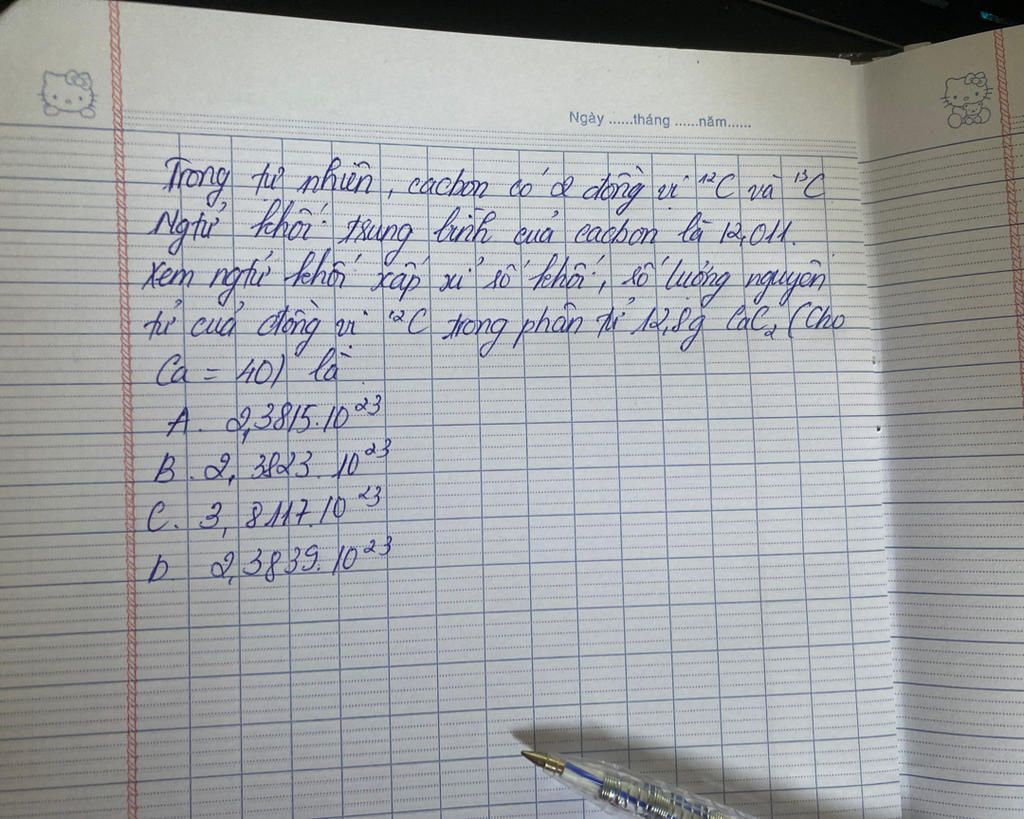 Ngày ......tháng ......năm......
Trong tự nhiên, cacbon có 2 đồng vị ¹²C và ¹³C
Ngtử khối trung bình của cacbon là 12,011.
Xem ngtử khối xấp xỉ số khối, số lượng nguyên
tử của đồng vị ¹²C trong phân tử 12,8g CaC₂ (Cho
Ca = 40) là
A. 2,3815.10²³
B. 2,3823.10²³
C. 3,8117.10²³
D. 2,3839.10²³